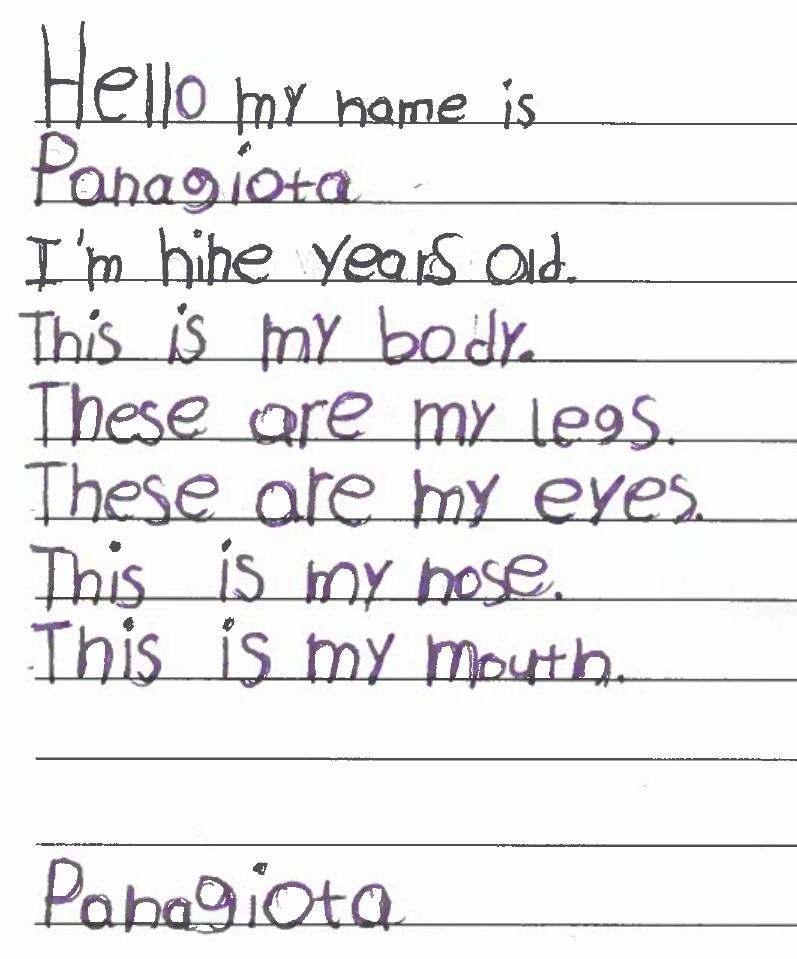 Hello my name is
Panagiota
I'm nine years old.
This is my body.
These are my legs.
These are my eyes.
This is my nose.
This is my mouth.
Panagiota